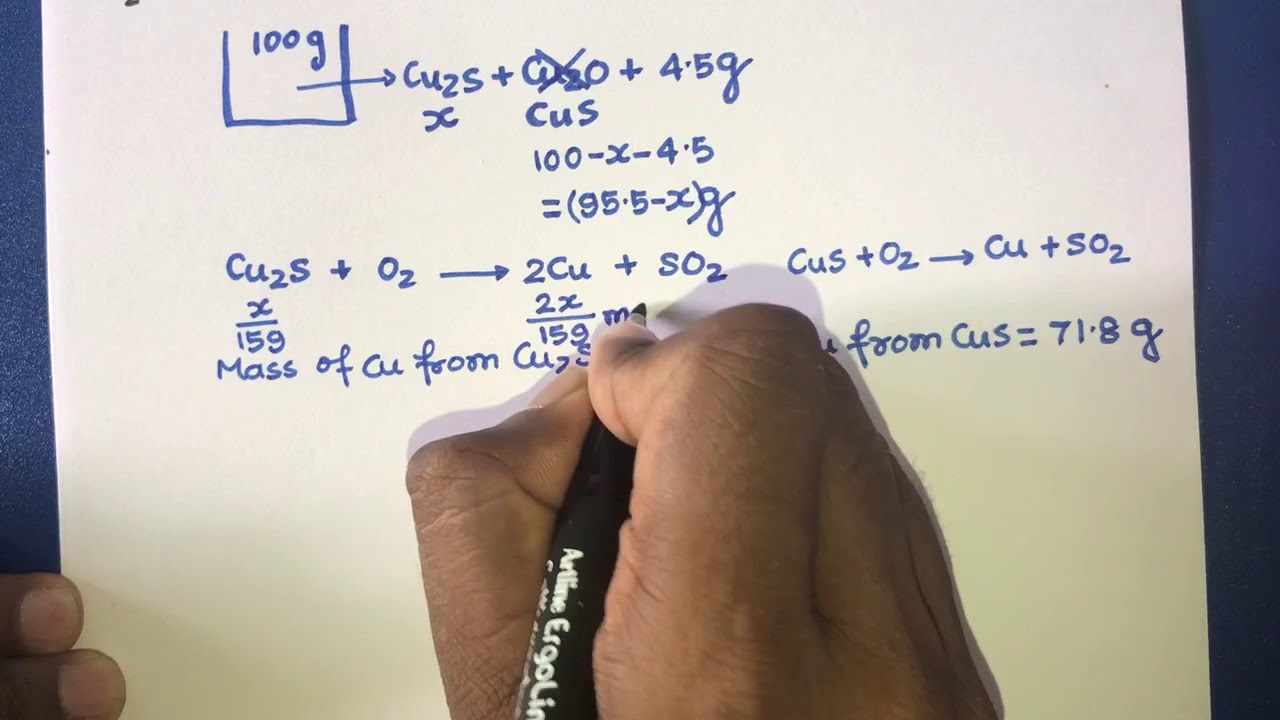 100g
Cu₂S + Cu₂O + 4.5g
x CuS
100-x-4.5
=(95.5-x)g
Cu₂S + O₂ ⟶ 2Cu + SO₂ CuS+O₂ ⟶ Cu + SO₂
x/159 2x/159
Mass of Cu from Cu₂S from CuS = 71.8 g
Artline Ergoline